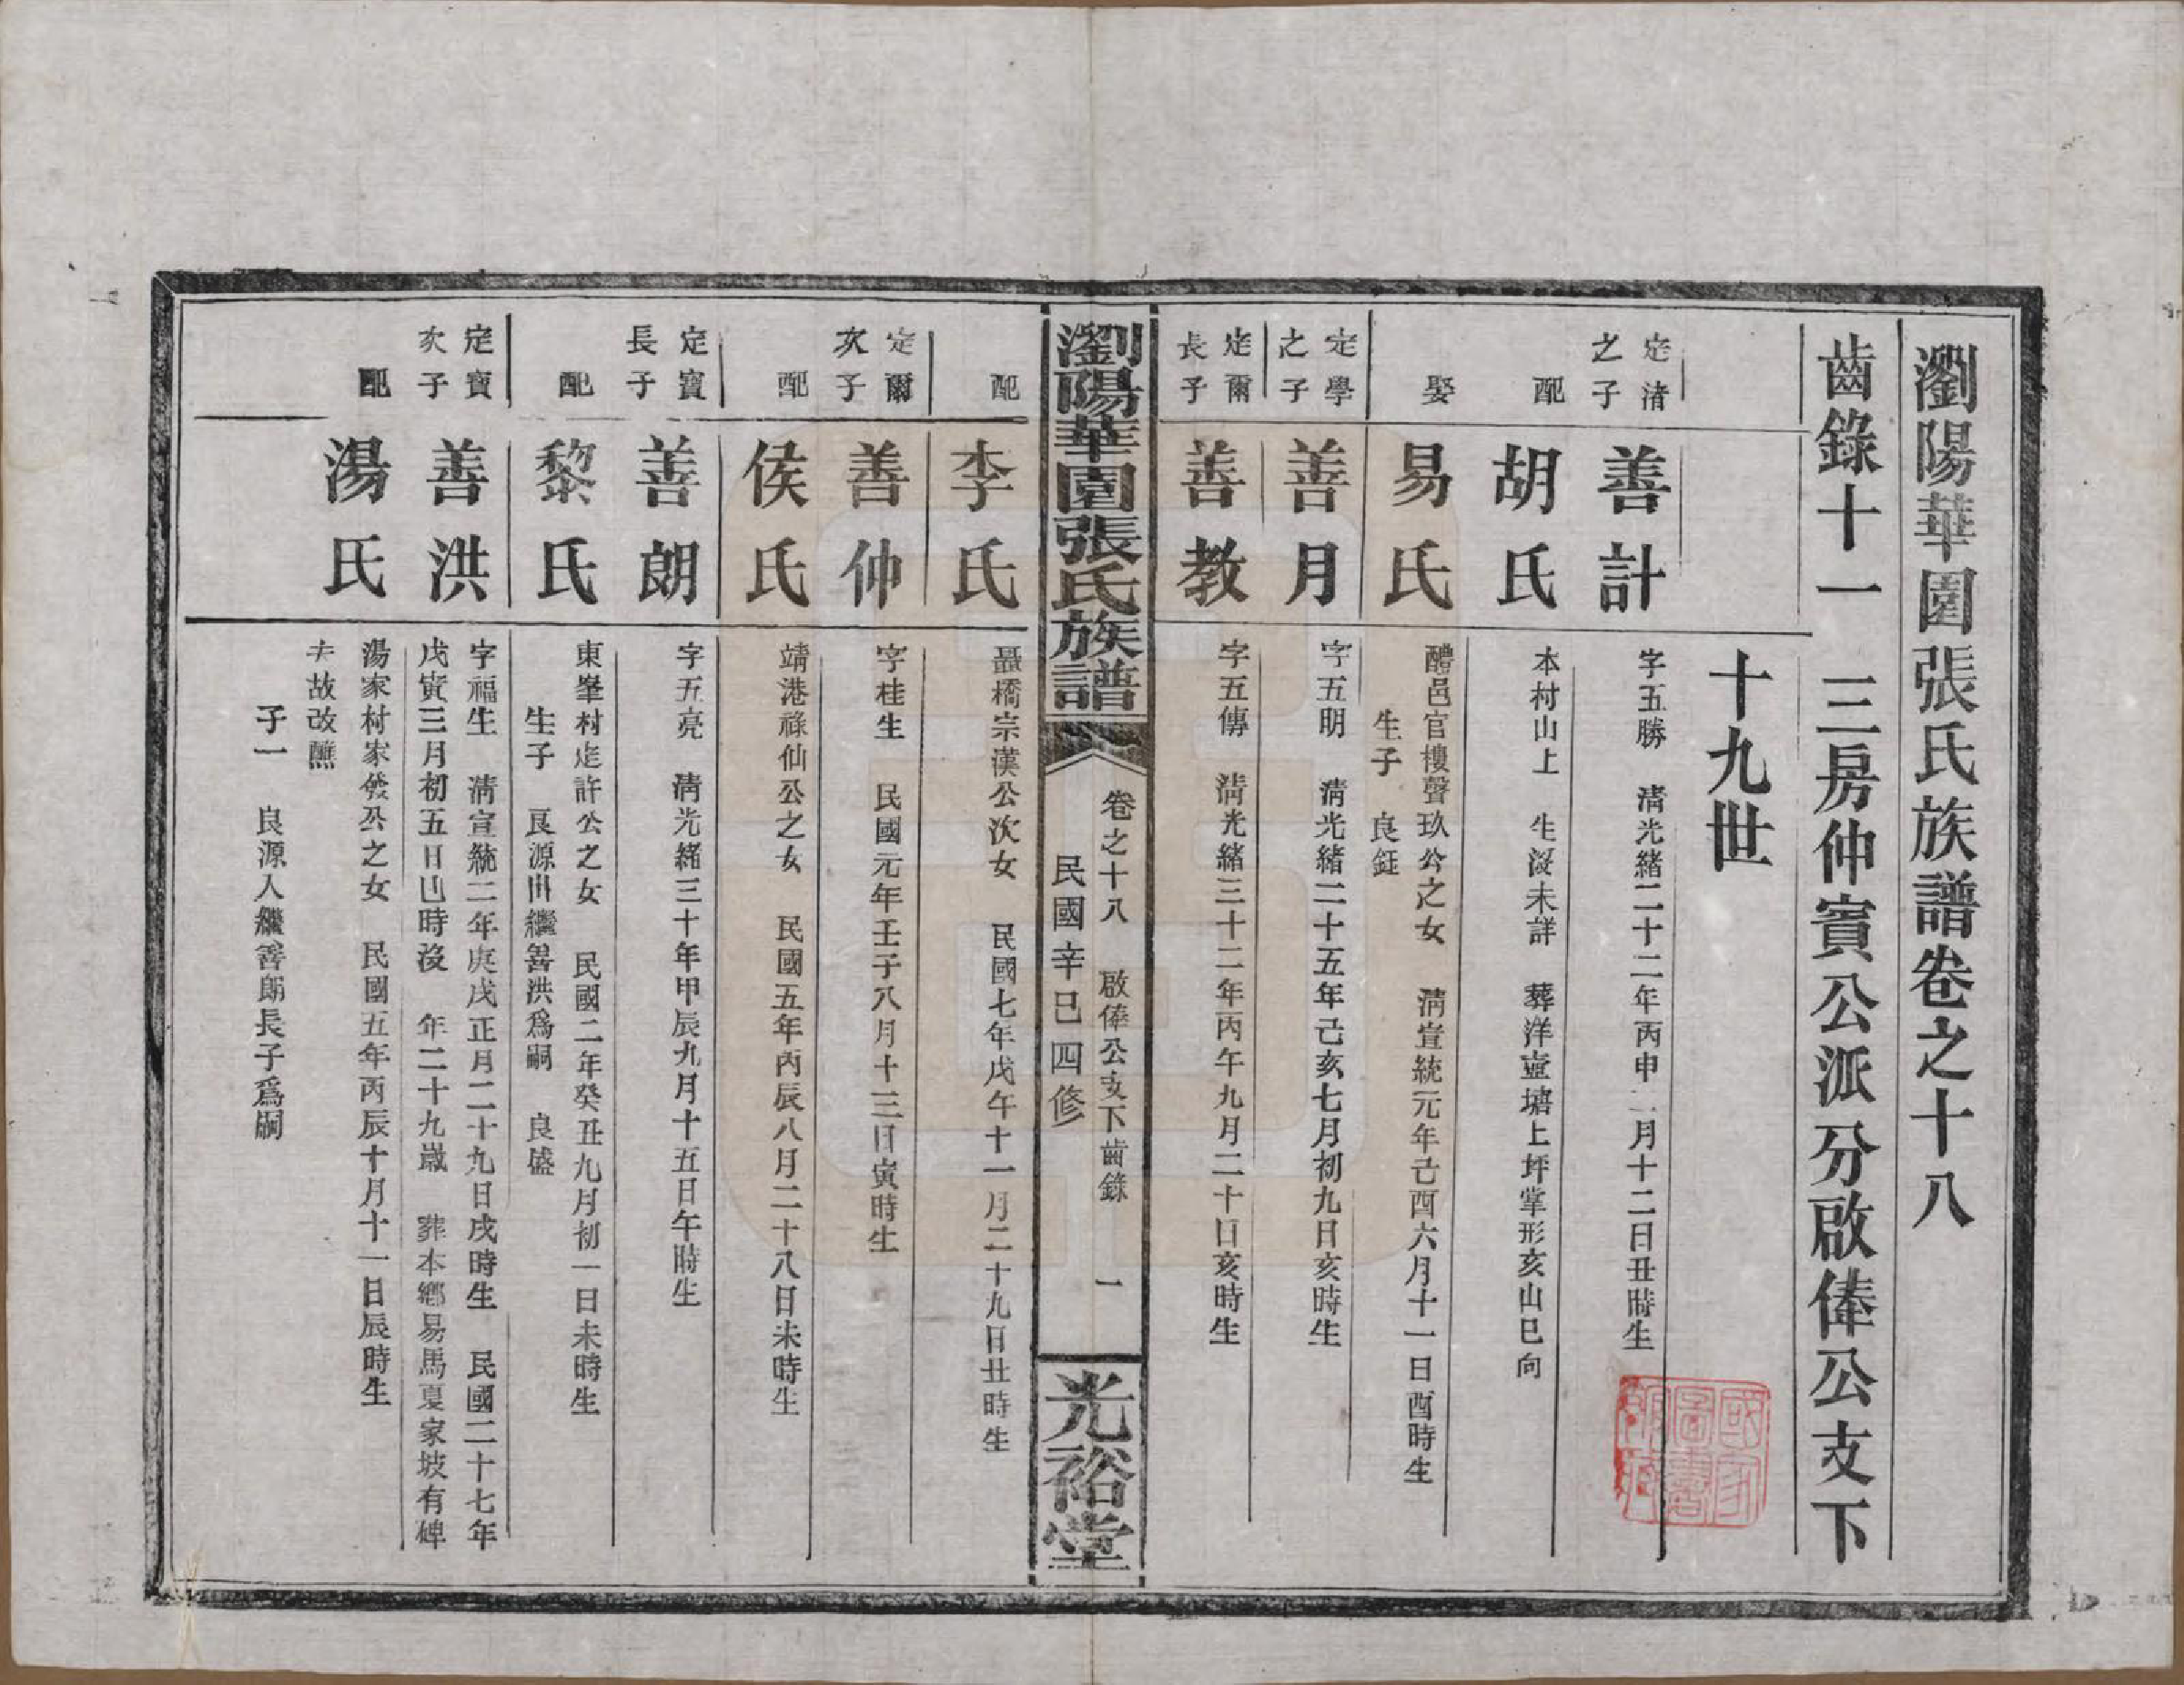 瀏陽華園張氏族譜卷之十八
齒錄十一 三房仲賓公派分啟俸公支下
十九世
定清之子
善計
字五勝 清光緒二十二年丙申二月十二日丑時生
配
胡氏
本村山上 生沒未詳 葬洋壺塘上坪掌形亥山巳向
娶
易氏
醴邑官樓聲玖公之女 清宣統元年己酉六月十一日酉時生
生子 良鉦
定學之子
善月
字五明 清光緒二十五年己亥七月初九日亥時生
定爾長子
善教
字五傳 清光緒三十二年丙午九月二十日亥時生
瀏陽華園張氏族譜
卷之十八 啟俸公支下齒錄 一
民國辛巳四修
光裕堂
配
李氏
聶橋宗漢公次女 民國七年戊午十一月二十九日丑時生
定爾次子
善仲
字桂生 民國元年壬子八月十三日寅時生
配
侯氏
靖港祿仙公之女 民國五年丙辰八月二十八日未時生
定寶長子
善朗
字五亮 清光緒三十年甲辰九月十五日午時生
配
黎氏
東峯村定許公之女 民國二年癸丑九月初一日未時生
生子 良源出繼善洪爲嗣 良盛
定寶次子
善洪
字福生 清宣統二年庚戌正月二十九日戌時生 民國二十七年
戊寅三月初五日巳時沒 年二十九歲 葬本鄉易馬夏家坡有碑
配
湯氏
湯家村家發公之女 民國五年丙辰十月十一日辰時生
夫故改醮
子一 良源入繼善朗長子爲嗣
國家圖書館藏